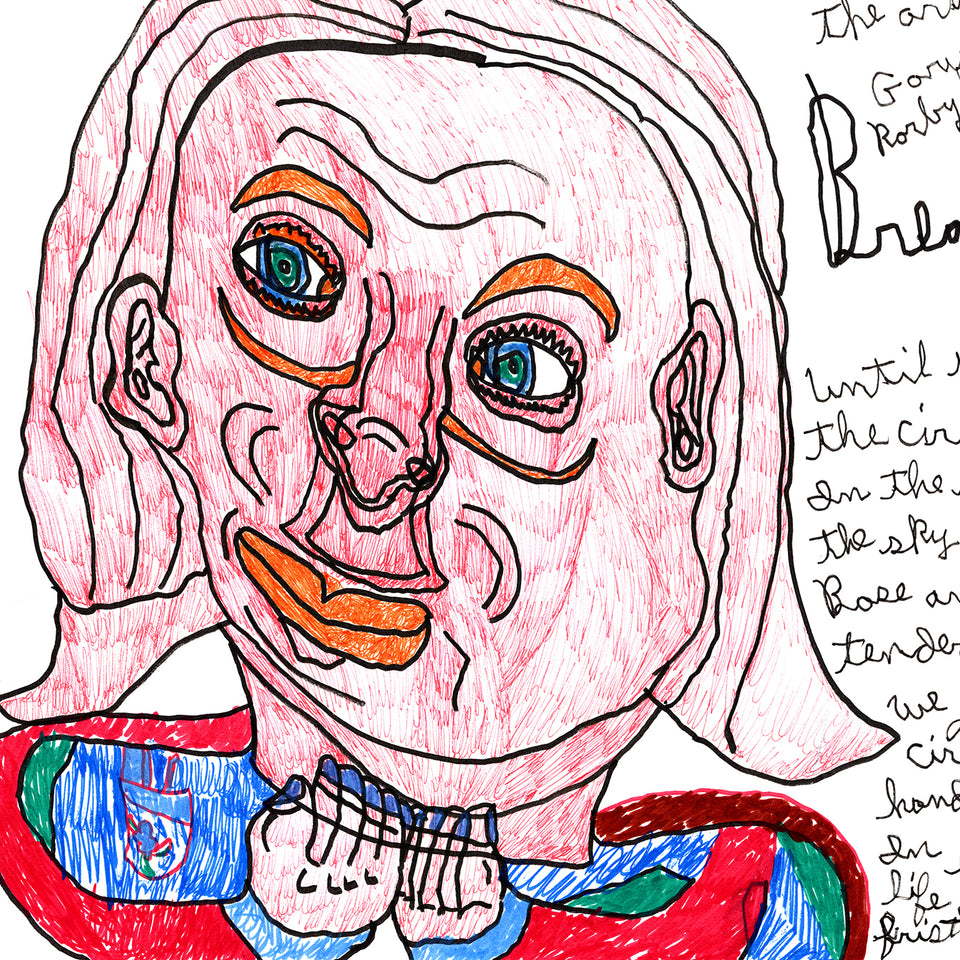 the ar
Gory
Rorby
Brea
Until
the cir
In the
the sky
Rose an
tender
We
cir
hand
In
life
frist